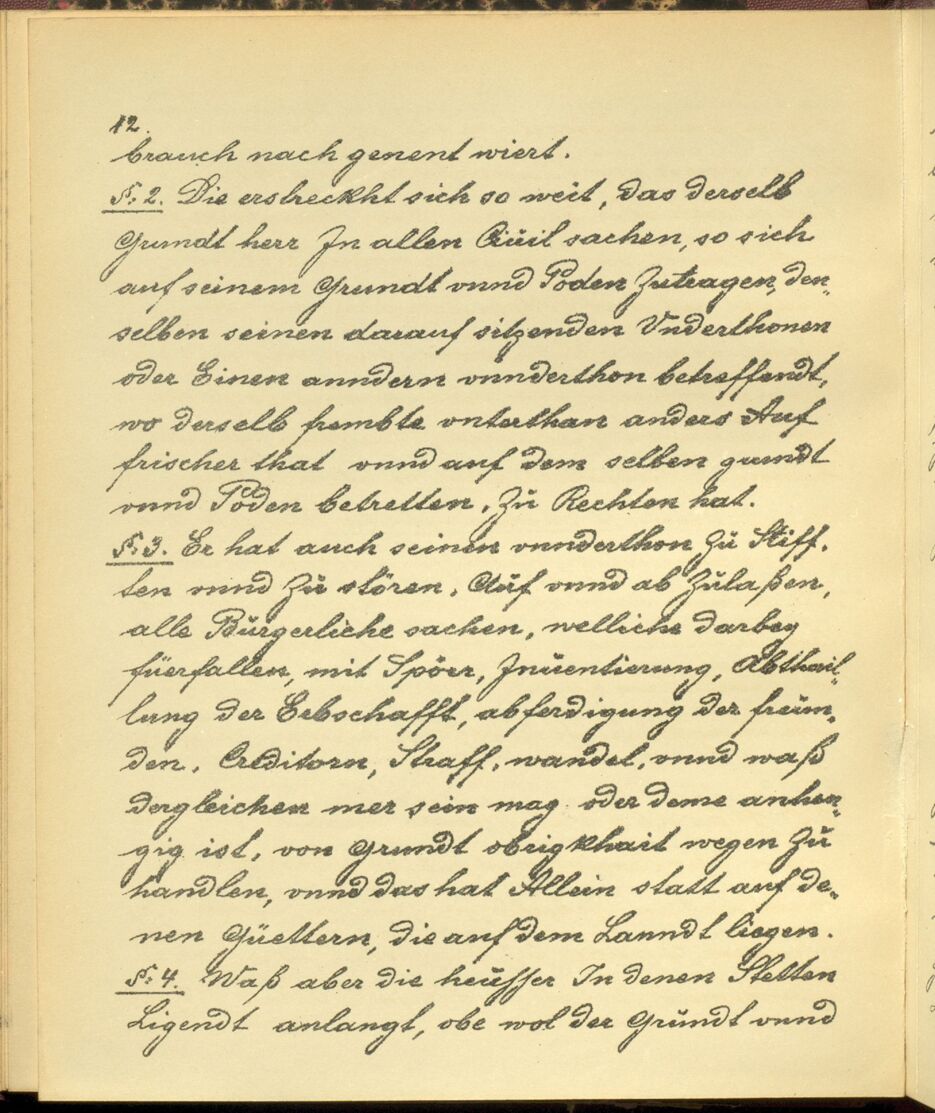 12.
brauch nach genent wiert.
§: 2. Die erstreckht sich so weit, das derselb
Grundt herr In allen Ciuil sachen, so sich
auf seinem Grundt vnnd Poden Zutragen, den„
selben seinen darauf sitzenden Vnderthonen
oder Einen anndern vnnderthon betreffendt,
wo derselb frembte vnterthan anders Auf
frischer that vnnd auf dem selben grundt
vnnd Pöden betretten, Zu Rechten hat.
§: 3. Er hat auch seinen vnnderthon Zu Stiff„
ten vnnd Zu stören, Auf vnnd ab Zulaßen,
alle Bürgerliche sachen, welliche darbey
füerfallen, mit Spörr, Inuentierung, Abthail„
lung der Erbschafft, abferdigung der freün„
den, Creditorn, Straff, wandel, vnnd waß
dergleichen mer sein mag oder deme anhen„
gig ist, von Grundt obrigkhait wegen Zu
handlen, vnnd das hat Allein statt auf de„
nen Güettern, die auf dem Lanndt liegen.
§: 4. Waß aber die heüsser In denen Stetten
Ligendt anlangt, obe wol der Grundt vnnd